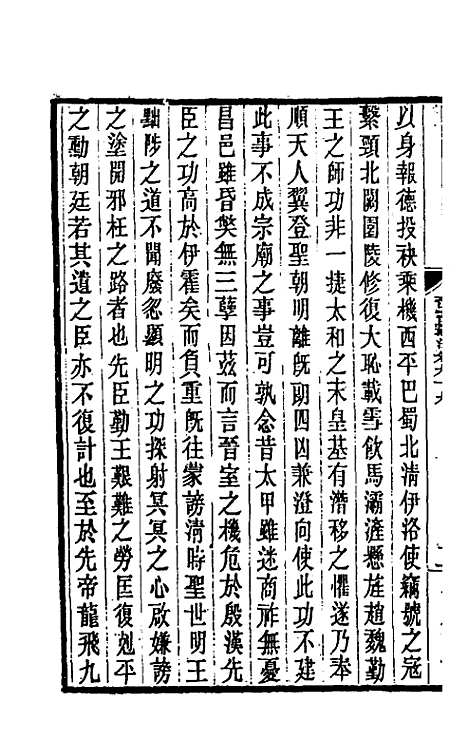 以身報德投袂乘機西平巴蜀北清伊洛使竊號之寇
繫頸北闕園陵修復大恥載雪飲馬灞滻懸旌趙魏勤
王之師功非一捷太和之末皇基有潛移之懼遂乃奉
順天人翼登聖朝明離旣朗四凶兼澄向使此功不建
此事不成宗廟之事豈可孰念昔太甲雖迷商祚無憂
昌邑雖昏獘無三孽因茲而言晉室之機危於殷漢先
臣之功高於伊霍矣而負重旣往蒙謗淸時聖世明王
黜陟之道不聞廢忽顯明之功探射冥冥之心啟嫌謗
之塗開邪枉之路者也先臣勤王艱難之勞匡復剋平
之勳朝廷若其遺之臣亦不復計也至於先帝龍飛九